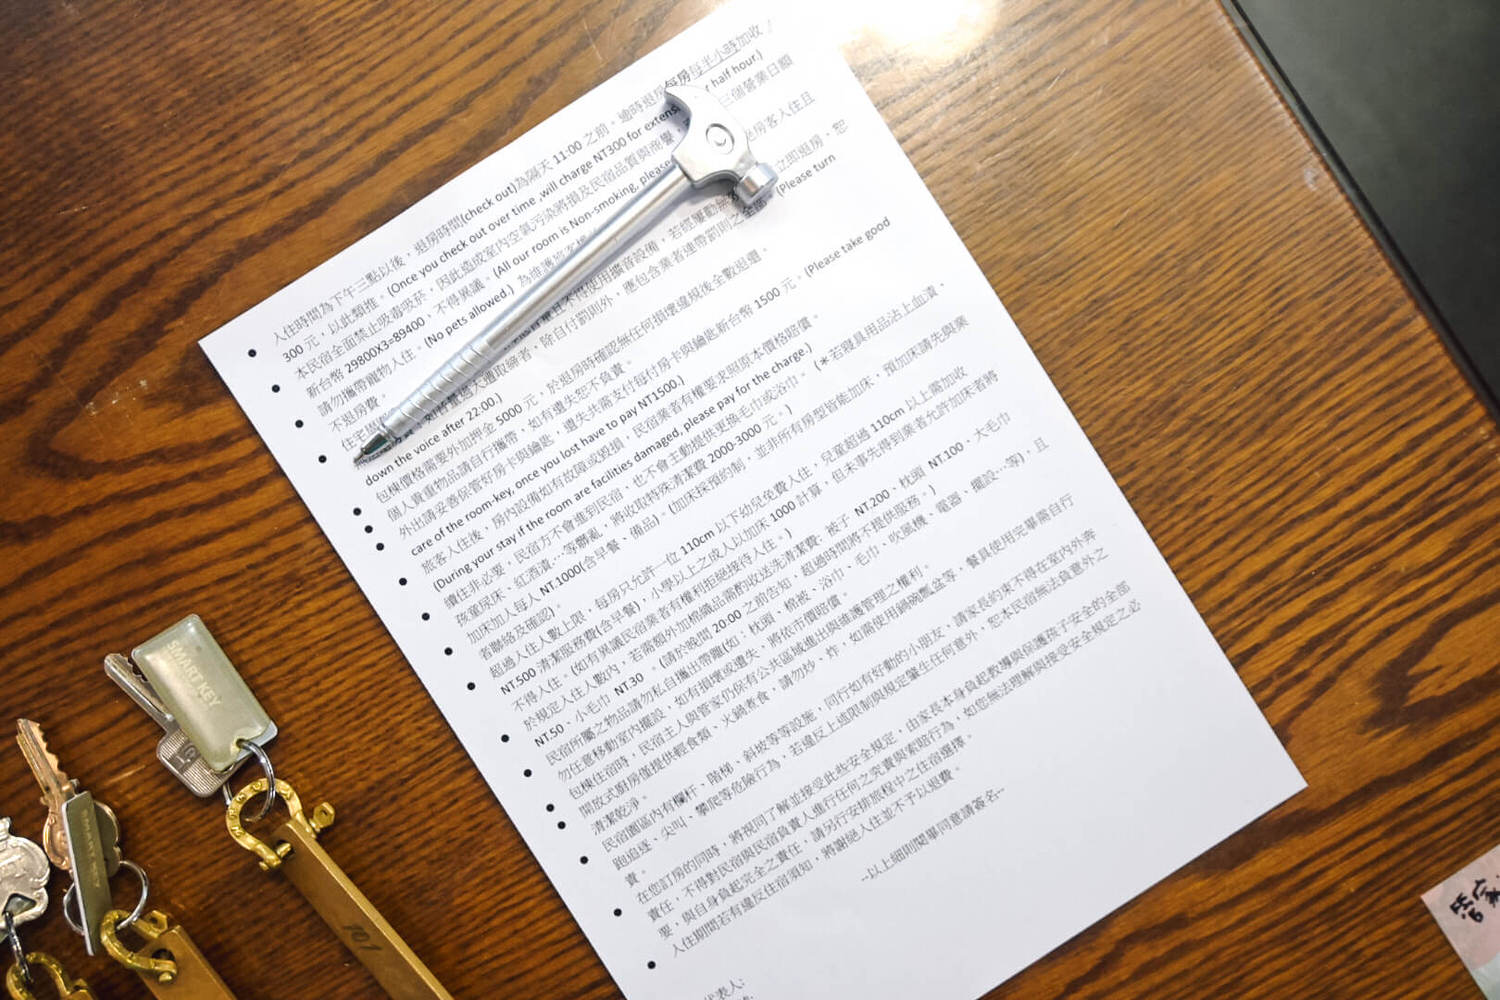 入住時間為下午三點以後，退房時間(check out)為隔天 11:00 之前。逾時退房每房每半小時加收
300 元，以此類推。(Once you check out over time ,will charge NT300 for extens half hour.)
本民宿全面禁止吸毒吸菸，因此造成室內空氣污染將損及民宿品質與商譽， 三個營業日額
新台幣 29800X3=89400，不得異議。(All our room is Non-smoking, please 房客入住且
請勿攜帶寵物入住。(No pets allowed.) 為維護
不退房費。 不得使用擴音設備，若經屢勸無 立即退房，恕
住宅 遭取締者，除自付罰則外，應包含業者連帶罰則之全部 (Please turn
down the voice after 22:00.)
包棟價格需要外加押金 5000 元，於退房時確認無任何損壞違規後全數退還。
個人貴重物品請自行攜帶，如有遺失恕不負責。
外出請妥善保管好房卡與鑰匙，遺失共需支付每付房卡與鑰匙新台幣 1500 元。(Please take good
care of the room-key, once you lost have to pay NT1500.)
旅客入住後，房內設備如有故障或毀損，民宿業者有權要求照原本價格賠償。
(During your stay if the room are facilities damaged, please pay for the charge.)
續住非必要，民宿方不會進到民宿，也不會主動提供更換毛巾或浴巾。(＊若寢具用品沾上血漬，
孩童尿床、紅酒漬…等髒亂，將收取特殊清潔費 2000-3000 元。)
加床加入每人 NT.1000(含早餐、備品)。(加床採預約制，並非所有房型皆能加床，預加床請先與業
者聯絡及確認)。
超過人住人數上限，每房只允許一位 110cm 以下幼兒免費入住，兒童超過 110cm 以上需加收
NT.500 清潔服務費(含早餐)，小學以上之成人以加床 1000 計算，但未事先得到業者允許加床者將
不得入住。(如有異議民宿業者有權利拒絕接待入住。)
於規定入住人數內，若需額外加棉織品需酌收送洗清潔費: 被子 NT.200、枕頭 NT.100、大毛巾
NT.50、小毛巾 NT.30 。(請於晚間 20:00 之前告知，超過時間將不提供服務。)
民宿所屬之物品請勿私自攜出帶離(如：枕頭、棉被、浴巾、毛巾、吹風機、電器、擺設…等)，且
勿任意移動室內擺設，如有損壞或遺失，將依市價賠償。
包棟住宿時，民宿主人與管家仍保有公共區域進出與維護管理之權利。
開放式廚房僅提供輕食類、火鍋煮食，請勿炒、炸，如需使用鍋碗瓢盆等，餐具使用完畢需自行
清潔乾淨。
民宿園區內有欄杆、階梯、斜坡等等設施，同行如有好動的小朋友，請家長約束不得在室內外奔
跑追逐、尖叫、攀爬等危險行為，若違反上述限制與規定肇生任何意外，恕本民宿無法負意外之
責。
在您訂房的同時，將視同了解並接受此些安全規定，由家長本身負起教導與保護孩子安全的全部
責任，不得對民宿與民宿負責人進行任何之究責與索賠行為，如您無法理解與接受安全規定之必
要，與自身負起完全之責任，請另行安排旅程中之住宿選擇。
入住期間若有違反住宿須知，將謝絕入住並不予以退費。
--以上細則閱畢同意請簽名--
代表人:
SMART KEY
SMART KEY
101